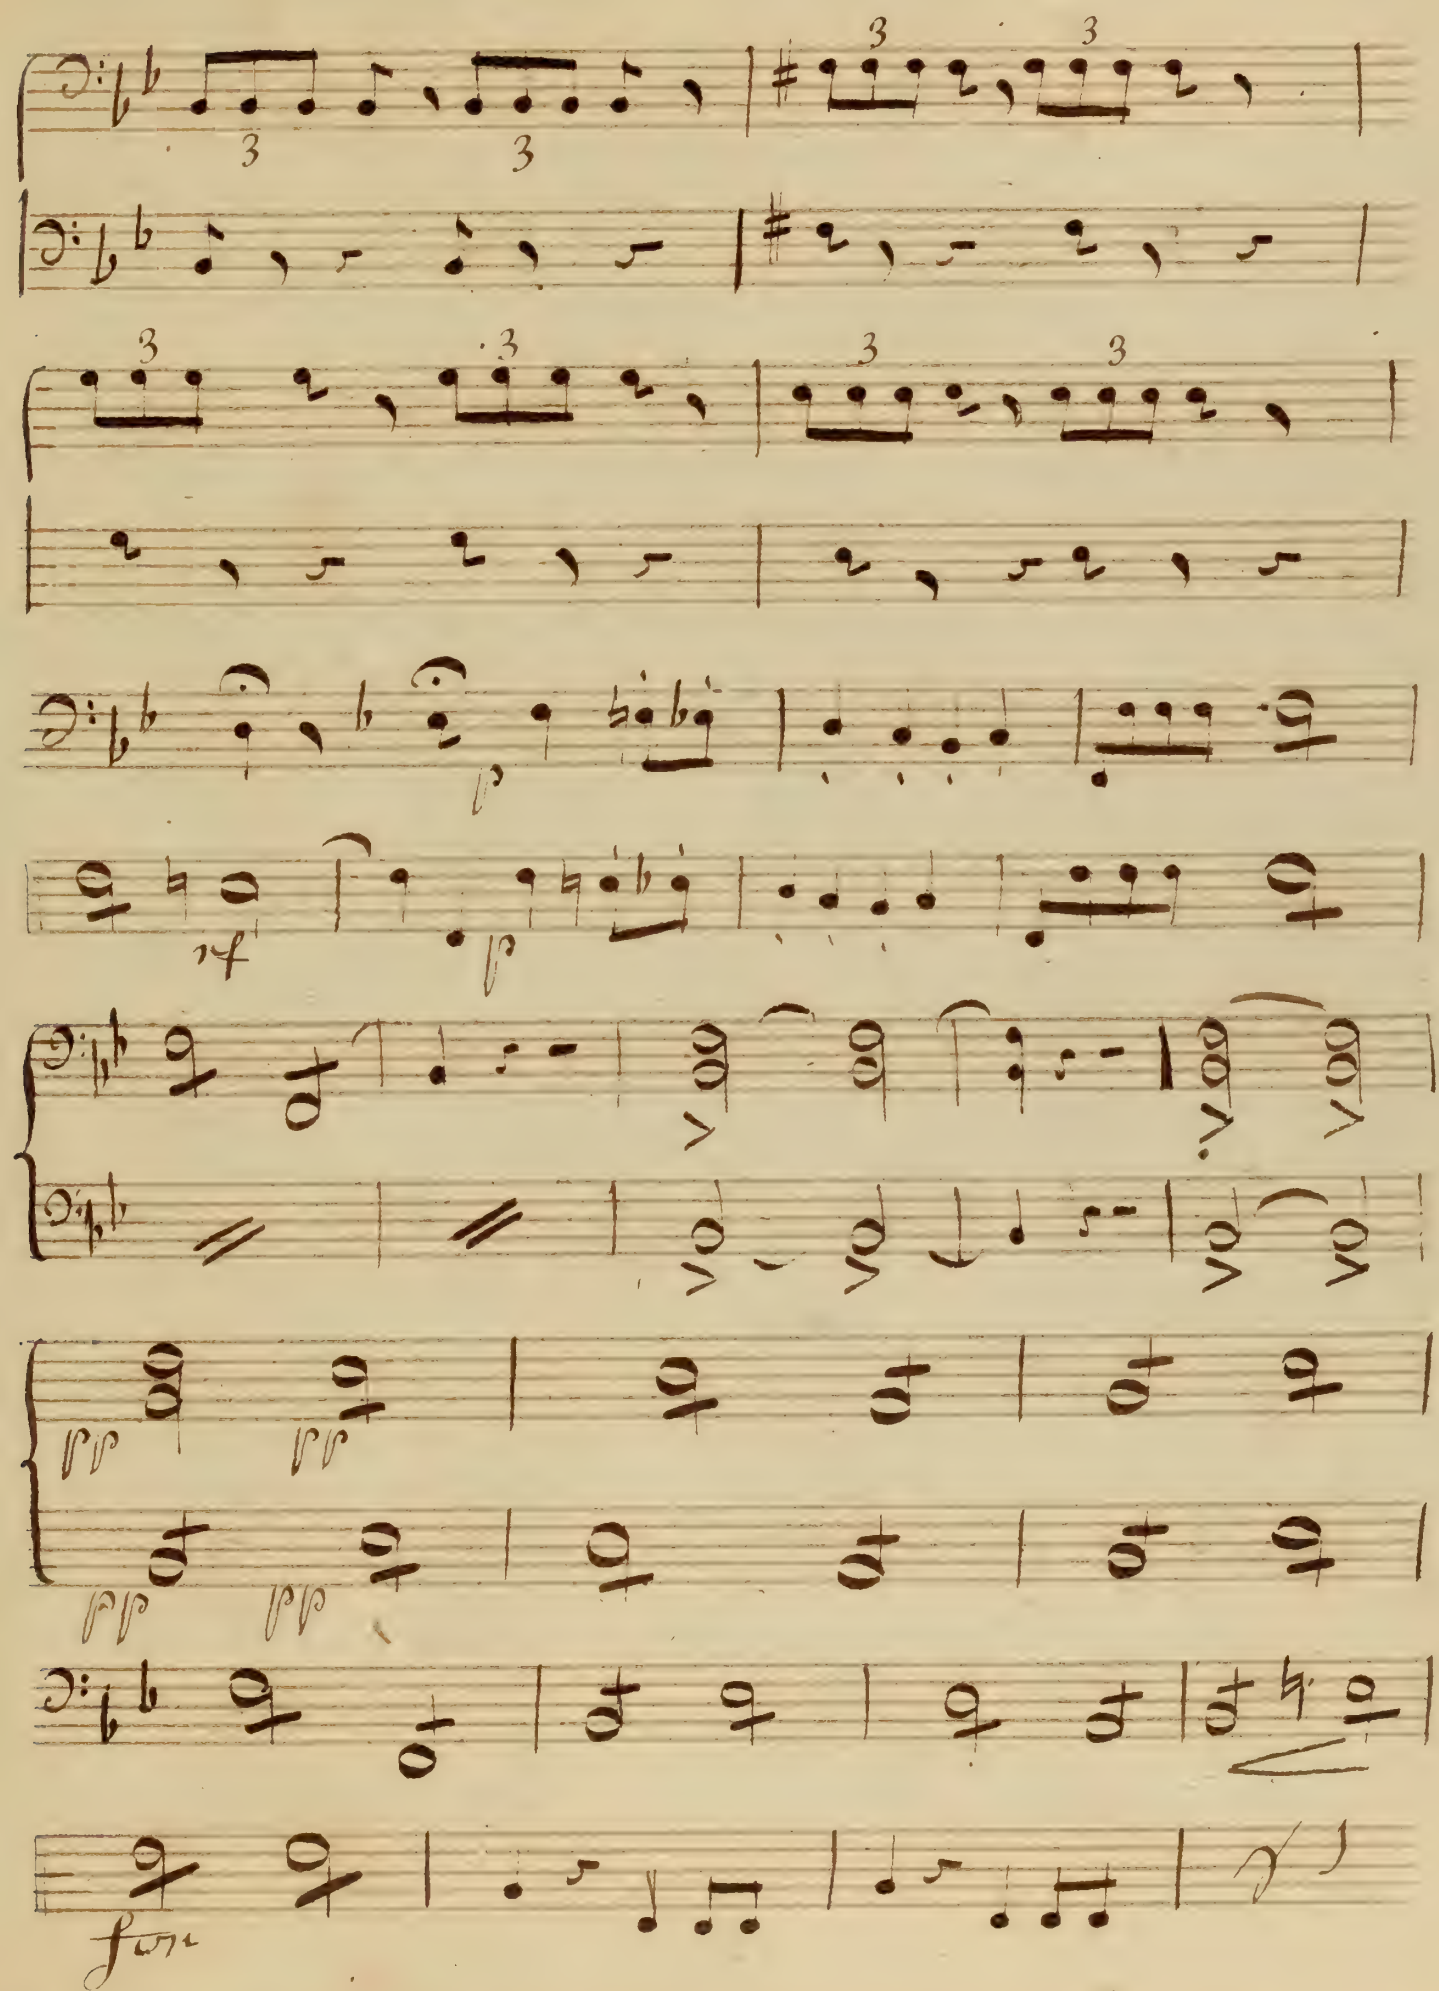 3 3
3 3
3 3 3 3
p
rf p
pp pp
pp pp